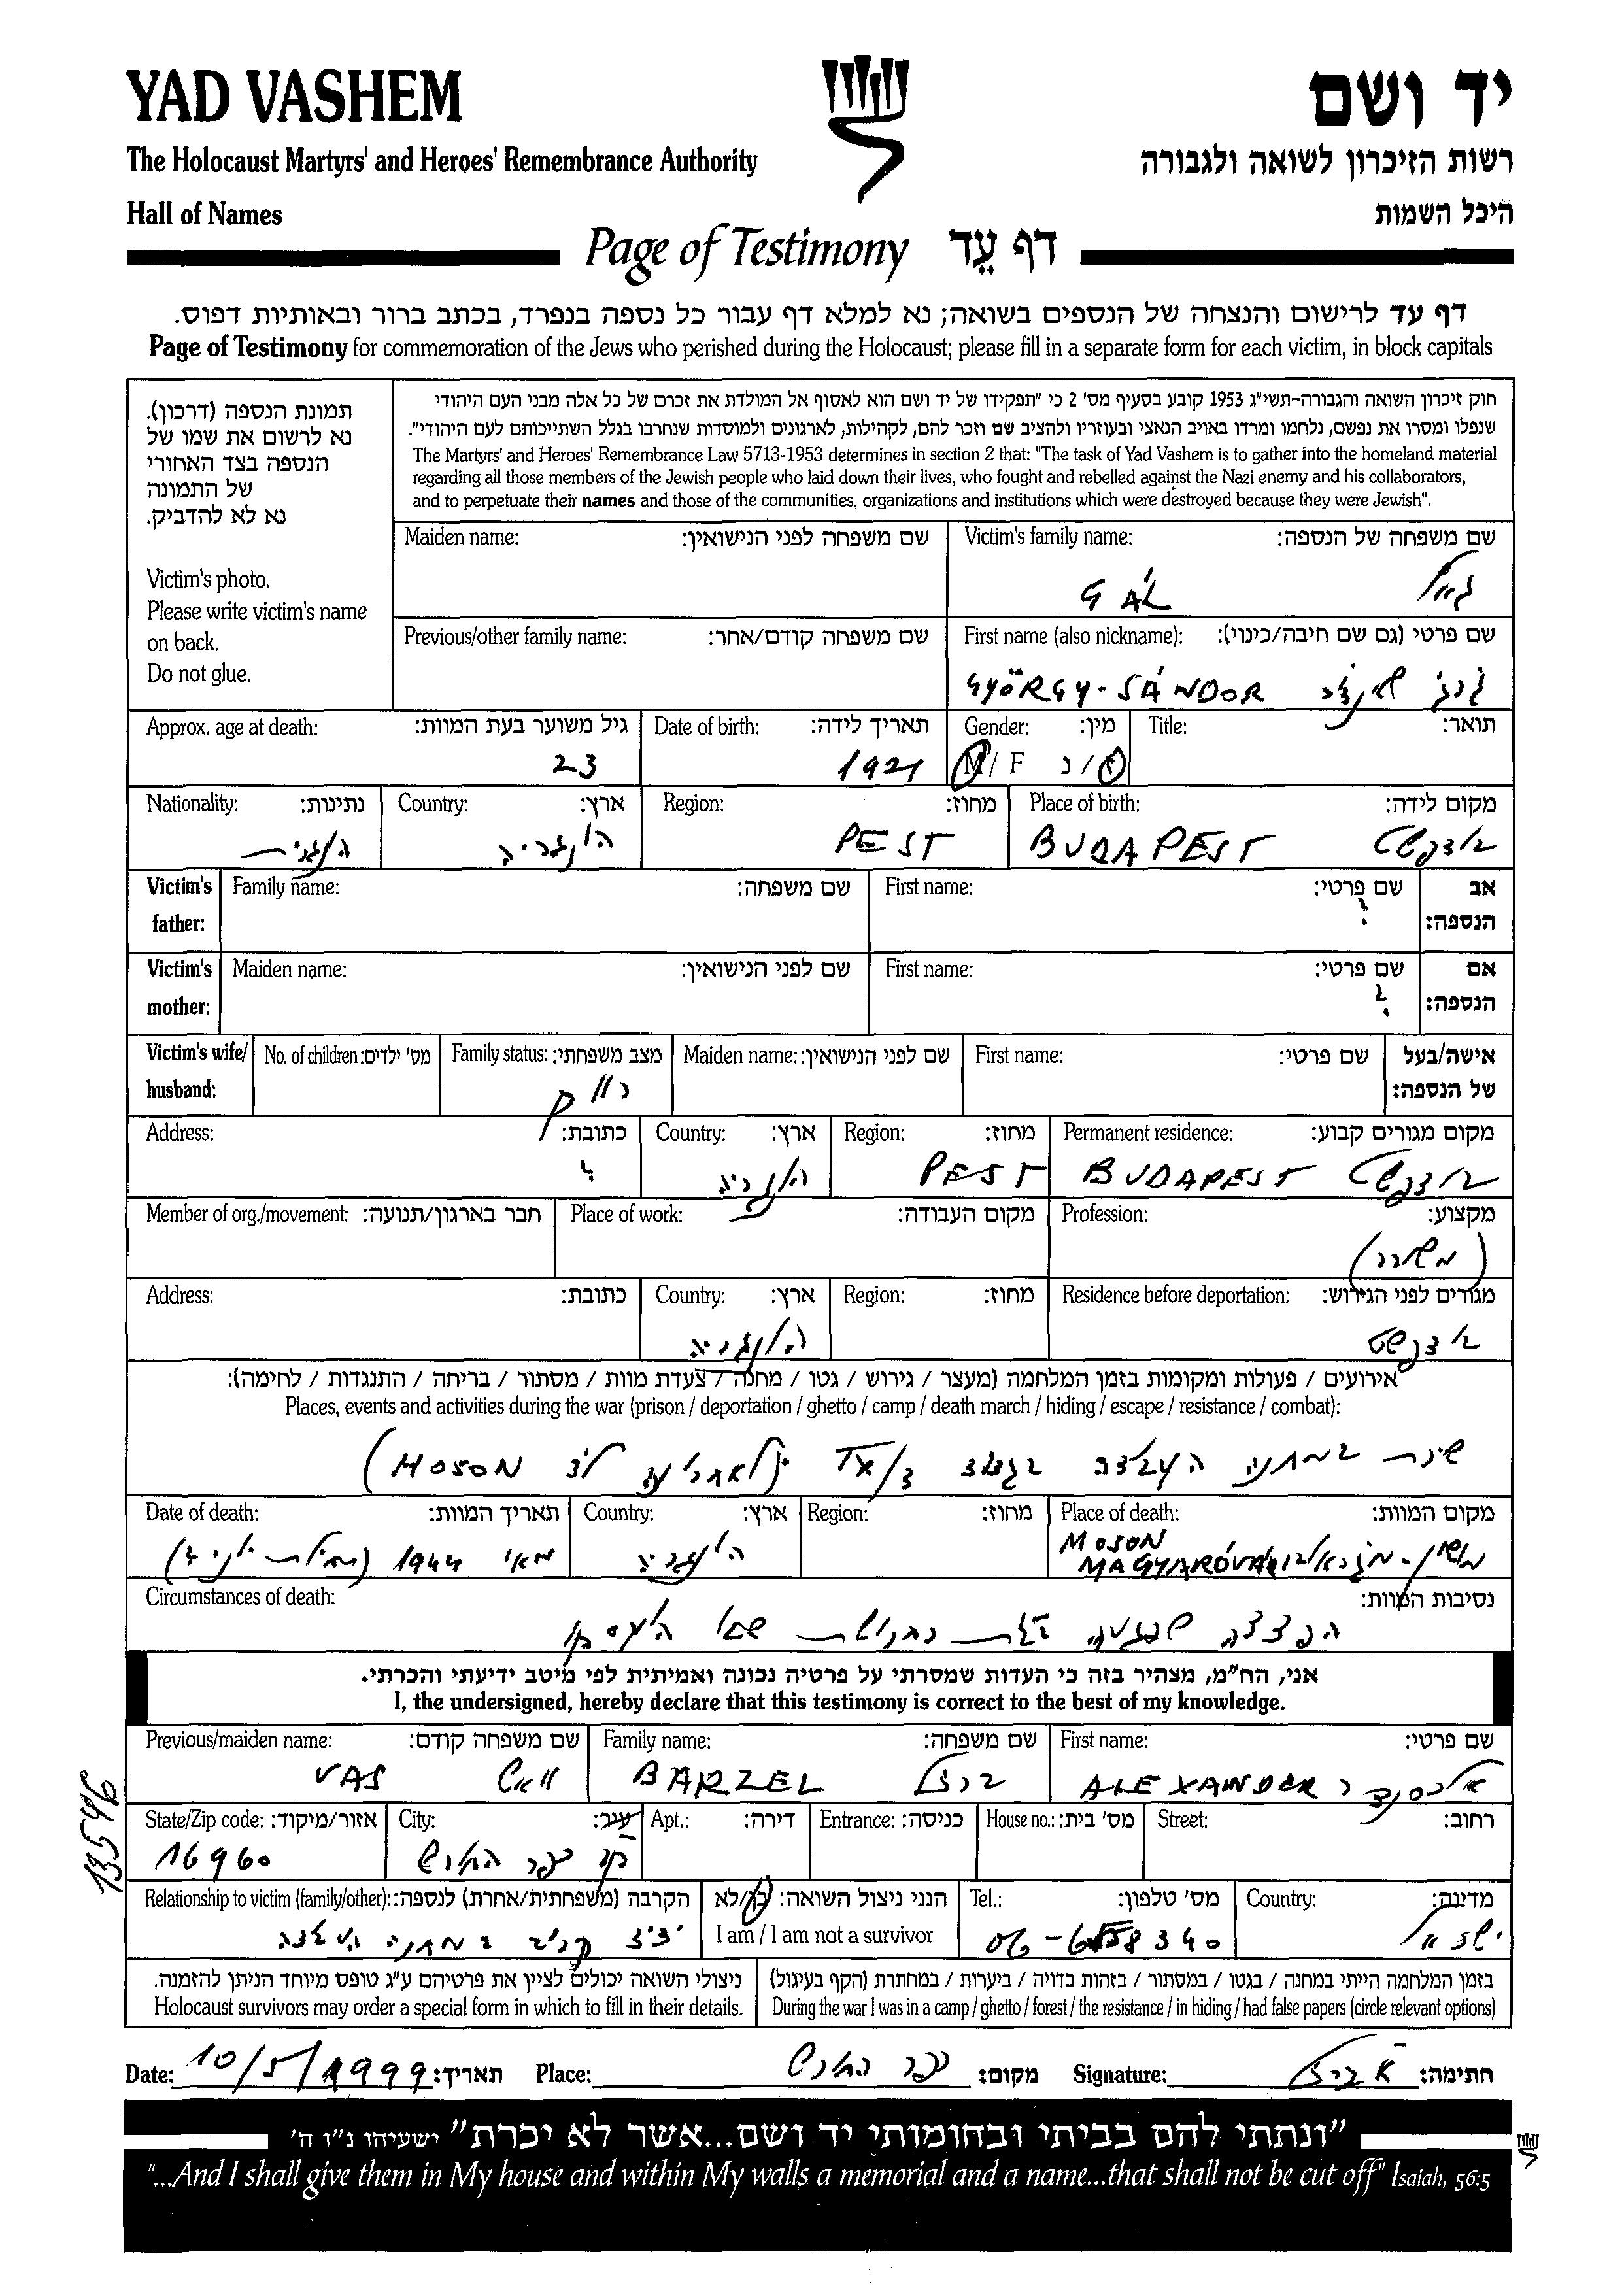 YAD VASHEM
יד ושם
The Holocaust Martyrs' and Heroes' Remembrance Authority
רשות הזיכרון לשואה ולגבורה
Hall of Names
היכל השמות
Page of Testimony דף עֵד
דף עד לרישום והנצחה של הנספים בשואה; נא למלא דף עבור כל נספה בנפרד, בכתב ברור ובאותיות דפוס.
Page of Testimony for commemoration of the Jews who perished during the Holocaust; please fill in a separate form for each victim, in block capitals
תמונת הנספה (דרכון).
נא לרשום את שמו של
הנספה בצד האחורי
של התמונה
נא לא להדביק.
Victim's photo.
Please write victim's name
on back.
Do not glue.
חוק זיכרון השואה והגבורה-תשי"ג 1953 קובע בסעיף מס' 2 כי "תפקידו של יד ושם הוא לאסוף אל המולדת את זכרם של כל אלה מבני העם היהודי
שנפלו ומסרו את נפשם, נלחמו ומרדו באויב הנאצי ובעוזריו ולהציב שם וזכר להם, לקהילות, לארגונים ולמוסדות שנחרבו בגלל השתייכותם לעם היהודי".
The Martyrs' and Heroes' Remembrance Law 5713-1953 determines in section 2 that: "The task of Yad Vashem is to gather into the homeland material
regarding all those members of the Jewish people who laid down their lives, who fought and rebelled against the Nazi enemy and his collaborators,
and to perpetuate their names and those of the communities, organizations and institutions which were destroyed because they were Jewish".
Maiden name: שם משפחה לפני הנישואין:
Victim's family name: שם משפחה של הנספה:
GÁL גאל
Previous/other family name: שם משפחה קודם/אחר:
First name (also nickname): שם פרטי (גם שם חיבה/כינוי):
GYÖRGY-SÁNDOR
Approx. age at death: גיל משוער בעת המוות:
23
Date of birth: תאריך לידה:
1921
Gender: מין:
M / F ז / נ
Title: תואר:
Nationality: נתינות:
הונגרית
Country: ארץ:
הונגריה
Region: מחוז:
PEST
Place of birth: מקום לידה:
BUDAPEST בודפשט
Victim's father: Family name: שם משפחה: First name: שם פרטי: אב הנספה:
?
Victim's mother: Maiden name: שם לפני הנישואין: First name: שם פרטי: אם הנספה:
?
Victim's wife/ husband: No. of children: מס' ילדים: Family status: מצב משפחתי: Maiden name: שם לפני הנישואין: First name: שם פרטי: אישה/בעל של הנספה:
רווק
Address: כתובת: Country: ארץ: Region: מחוז: Permanent residence: מקום מגורים קבוע:
? הונגריה PEST BUDAPEST בודפשט
Member of org./movement: חבר בארגון/תנועה: Place of work: מקום העבודה: Profession: מקצוע:
(משורר)
Address: כתובת: Country: ארץ: Region: מחוז: Residence before deportation: מגורים לפני הגירוש:
הונגריה בודפשט
אירועים / פעולות ומקומות בזמן המלחמה (מעצר / גירוש / גטו / מחנה / צעדת מוות / מסתור / בריחה / התנגדות / לחימה):
Places, events and activities during the war (prison / deportation / ghetto / camp / death march / hiding / escape / resistance / combat):
שירת במחנה העבודה בגדוד ליד MOSON)
Date of death: תאריך המוות: Country: ארץ: Region: מחוז: Place of death: מקום המוות:
מאי 1944 (תחילת יוני ?) הונגריה MOSON
MAGYARÓVÁR
Circumstances of death: נסיבות המוות:
הפצצה
אני, הח"מ, מצהיר בזה כי העדות שמסרתי על פרטיה נכונה ואמיתית לפי מיטב ידיעתי והכרתי.
I, the undersigned, hereby declare that this testimony is correct to the best of my knowledge.
Previous/maiden name: שם משפחה קודם: Family name: שם משפחה: First name: שם פרטי:
VAS וואש BARZEL ברזל ALEXANDER אלכסנדר
State/Zip code: אזור/מיקוד: City: עיר: Apt.: דירה: Entrance: כניסה: House no.: מס' בית: Street: רחוב:
16960 קב' כפר החורש
Relationship to victim (family/other): הקרבה (משפחתית/אחרת) לנספה: הנני ניצול השואה: כן/לא Tel.: מס' טלפון: Country: מדינה:
I am / I am not a survivor
ידיד קרוב במחנה העבודה 06-6558340 ישראל
ניצולי השואה יכולים לציין את פרטיהם ע"ג טופס מיוחד הניתן להזמנה.
Holocaust survivors may order a special form in which to fill in their details.
בזמן המלחמה הייתי במחנה / בגטו / במסתור / בזהות בדויה / ביערות / במחתרת (הקף בעיגול)
During the war I was in a camp / ghetto / forest / the resistance / in hiding / had false papers (circle relevant options)
Date: 10/5/1999 תאריך: Place: כפר החורש מקום: Signature: א ברזל חתימה:
"ונתתי להם בביתי ובחומותי יד ושם...אשר לא יכרת" ישעיהו נ"ו ה'
"...And I shall give them in My house and within My walls a memorial and a name...that shall not be cut off" Isaiah, 56:5
13546